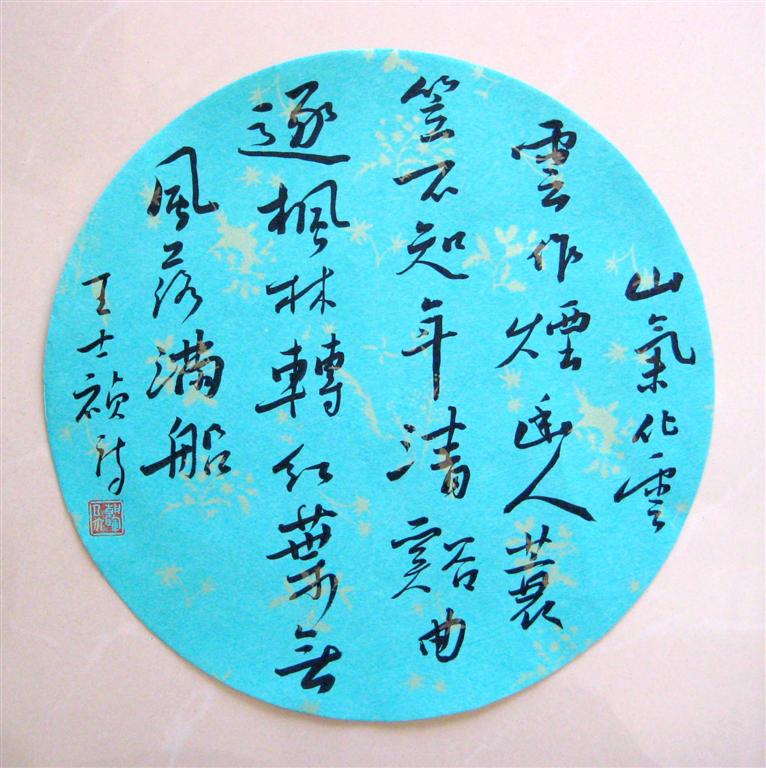 山氣化雲
雲作煙幽人蓑
笠不知年清谿曲
逐楓林轉紅葉無
風落滿船
王士禎詩